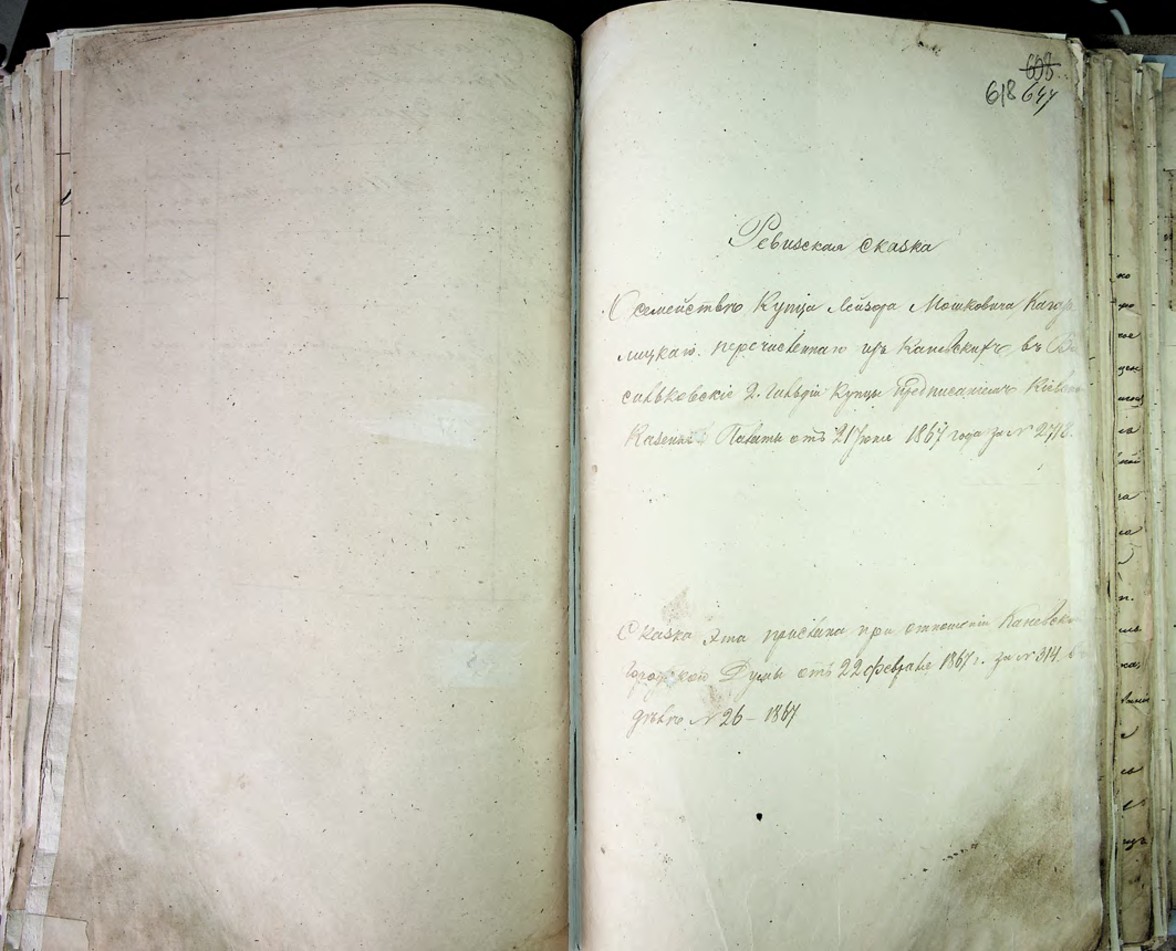 608
618 647
Ревизская сказка
О семействѣ Купца Лейзора Мошковича Кагар
лицкаго перечисленнаго изъ Каневскихъ въ Ва
сильковскіе 2. гильдіи Купцы предписаніемъ Кіевск
Казенн Палаты отъ 21 Іюня 1867 года за №
Сказка эта прислана при отношеніи Каневско
Городской Думы отъ 22 февраля 1867 г. за № 314. в
дѣлѣ № 26 – 1867